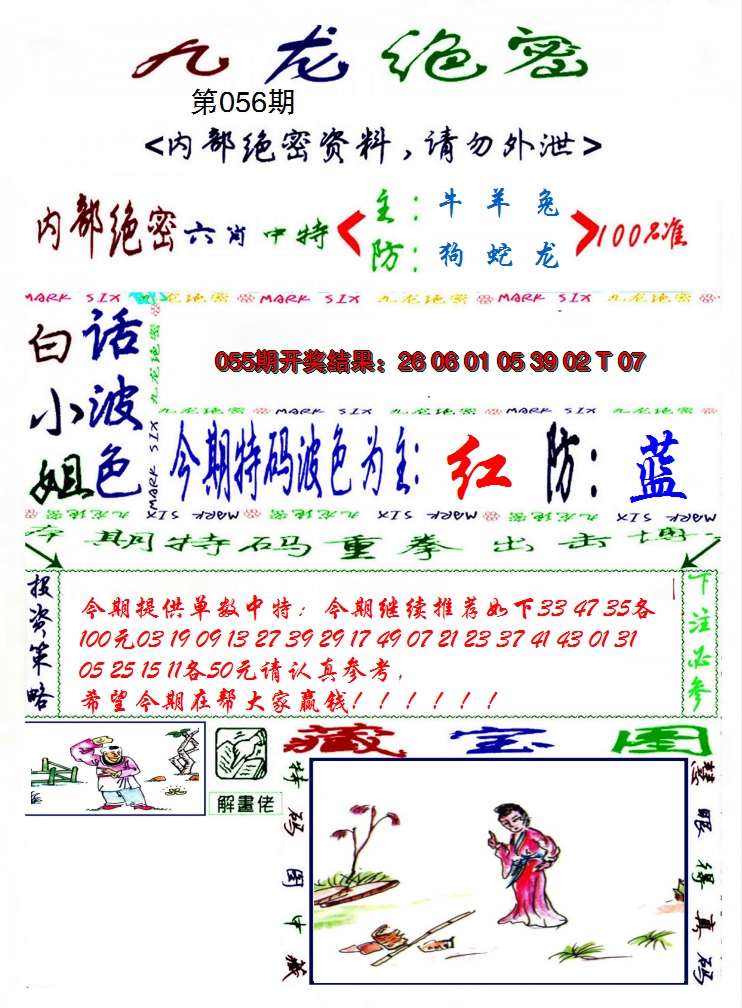 九龙绝密
第056期
<内部绝密资料，请勿外泄>
内部绝密六肖中特
主：牛 羊 兔
防：狗 蛇 龙
100%准
MARK SIX 九龙绝密 MARK SIX 九龙绝密 MARK SIX 九龙绝密
白小姐
话波色
九龙绝密
MARK SIX
055期开奖结果：26 06 01 05 39 02 T 07
九龙绝密 MARK SIX 九龙绝密 MARK SIX 九龙绝密
今期特码波色为主：红 防：蓝
九龙绝密 MARK SIX 九龙绝密 MARK SIX 九龙绝密 MARK SIX
本期特码重拳出击博
投资策略
今期提供单数中特；今期继续推荐如下33 47 35各
100元03 19 09 13 27 39 29 17 49 07 21 23 37 41 43 01 31
05 25 15 11各50元请认真参考，
希望今期在帮大家赢钱！！！！！！
下注必参
藏宝图
解畫佬
特码图中藏
慧眼得真码